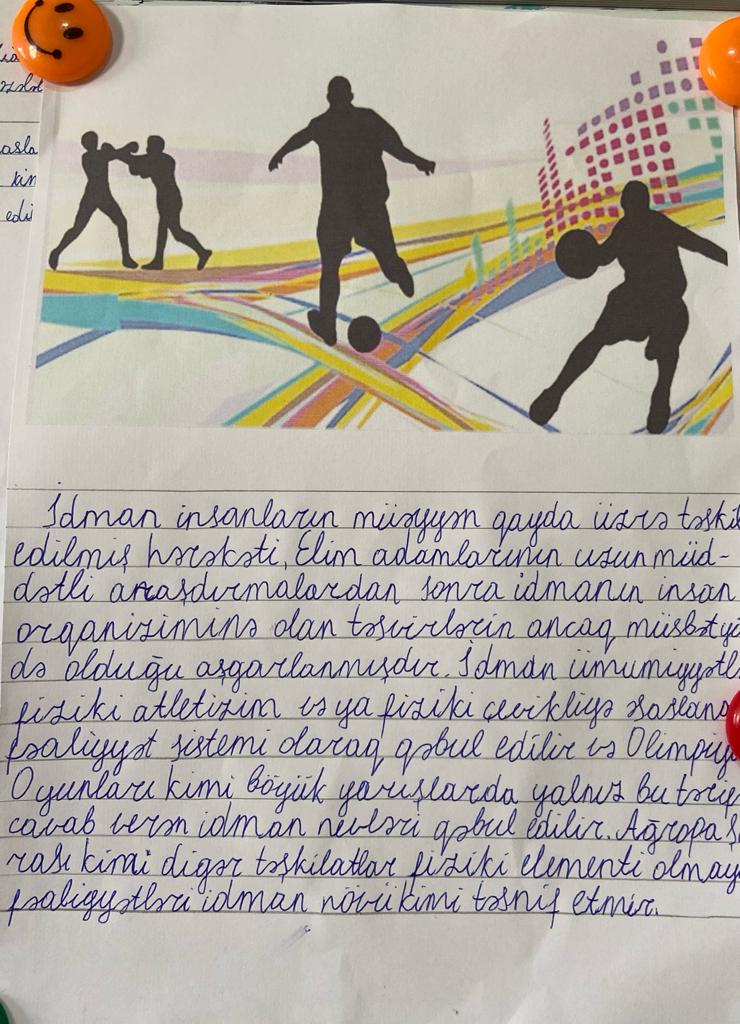 zələt
asla
kin
edi
İdman insanların müəyyən qayda üzrə təşkil
edilmiş hərəkəti, Elim adamlarının uzun müd-
dətli araşdırmalardan sonra idmanın insan
organizminə olan təsvirlərin ancaq müsbət yö
də olduğu aşgarlanmışdır. İdman ümumiyyətl
fiziki atletizim və ya fiziki çevikliyə əsaslana
fəaliyyət sistemi olaraq qəbul edilir və Olimpiya
Oyunları kimi böyük yarışlarda yalnız bu
cavab verən idman nevləri qəbul edilir. Ağropa Ş
rası kimi digər təşkilatlar fiziki elementi olmaya
fəaliyyətləri idman növü kimi təsnif etmir.